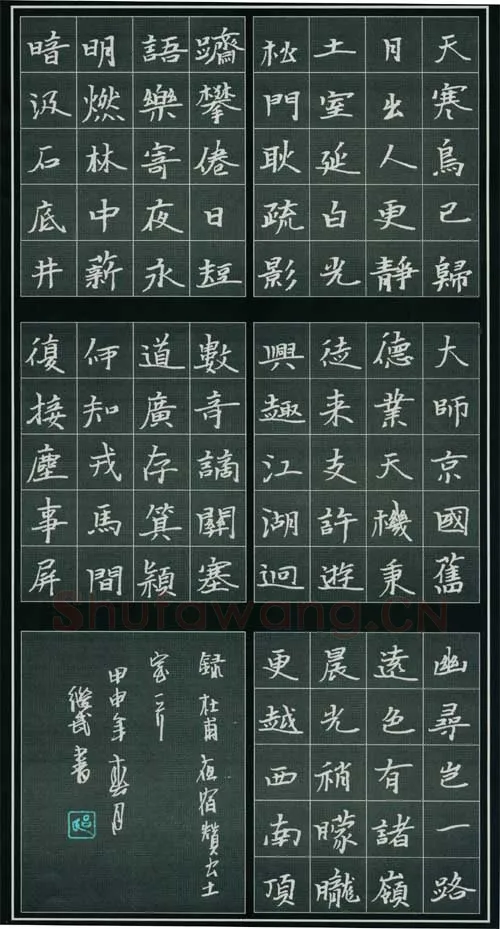 天寒鳥已歸
月出人更靜
土室延白光
松門耿疏影
躋攀倦日短
語樂寄夜永
明燃林中薪
暗汲石底井
大師京國舊
德業天機秉
從来支許遊
興趣江湖迥
數奇謫關塞
道廣存箕潁
何知戎馬間
復接塵事屏
幽尋豈一路
遠色有諸嶺
晨光稍朦朧
更越西南頂
録杜甫夜宿贊公土
室一首
甲申年春月
繼武書
Shufawang.CN